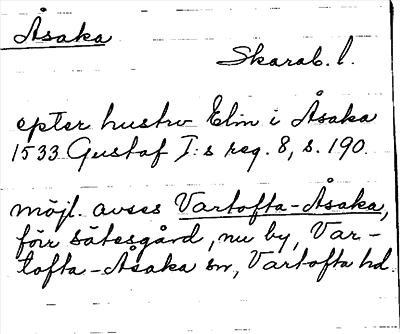 Åsaka
Skarab. l.
epter hustrv Elin i Åsaka
1533 Gustaf I:s reg. 8, s. 190.
möjl. avses Vartofta-Åsaka,
förr sätesgård, nu by, Var-
tofta-Åsaka sn, Vartofta hd.